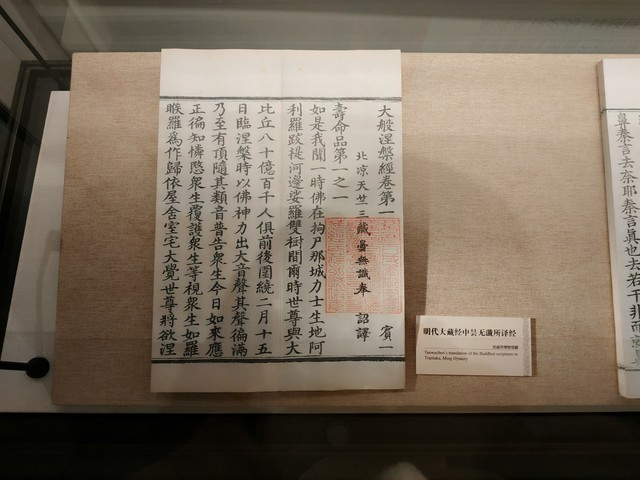 大般涅槃經卷第一 賓一
北涼天竺三藏曇無讖奉 詔譯
壽命品第一之一
如是我聞一時佛在拘尸那城力士生地阿
利羅跋提河邊娑羅雙樹間爾時世尊與大
比丘八十億百千人俱前後圍繞二月十五
日臨涅槃時以佛神力出大音聲其聲徧滿
乃至有頂隨其類音普告衆生今日如來應
正徧知憐愍衆生覆護衆生等視衆生如羅
睺羅爲作歸依屋舍室宅大覺世尊將欲涅
明代大藏经中昙无谶所译经
Tanwuchen's translation of the Buddhist scriptures in
Tripitaka, Ming Dynasty
鼻秦言去奈耶秦言眞也去若干非而